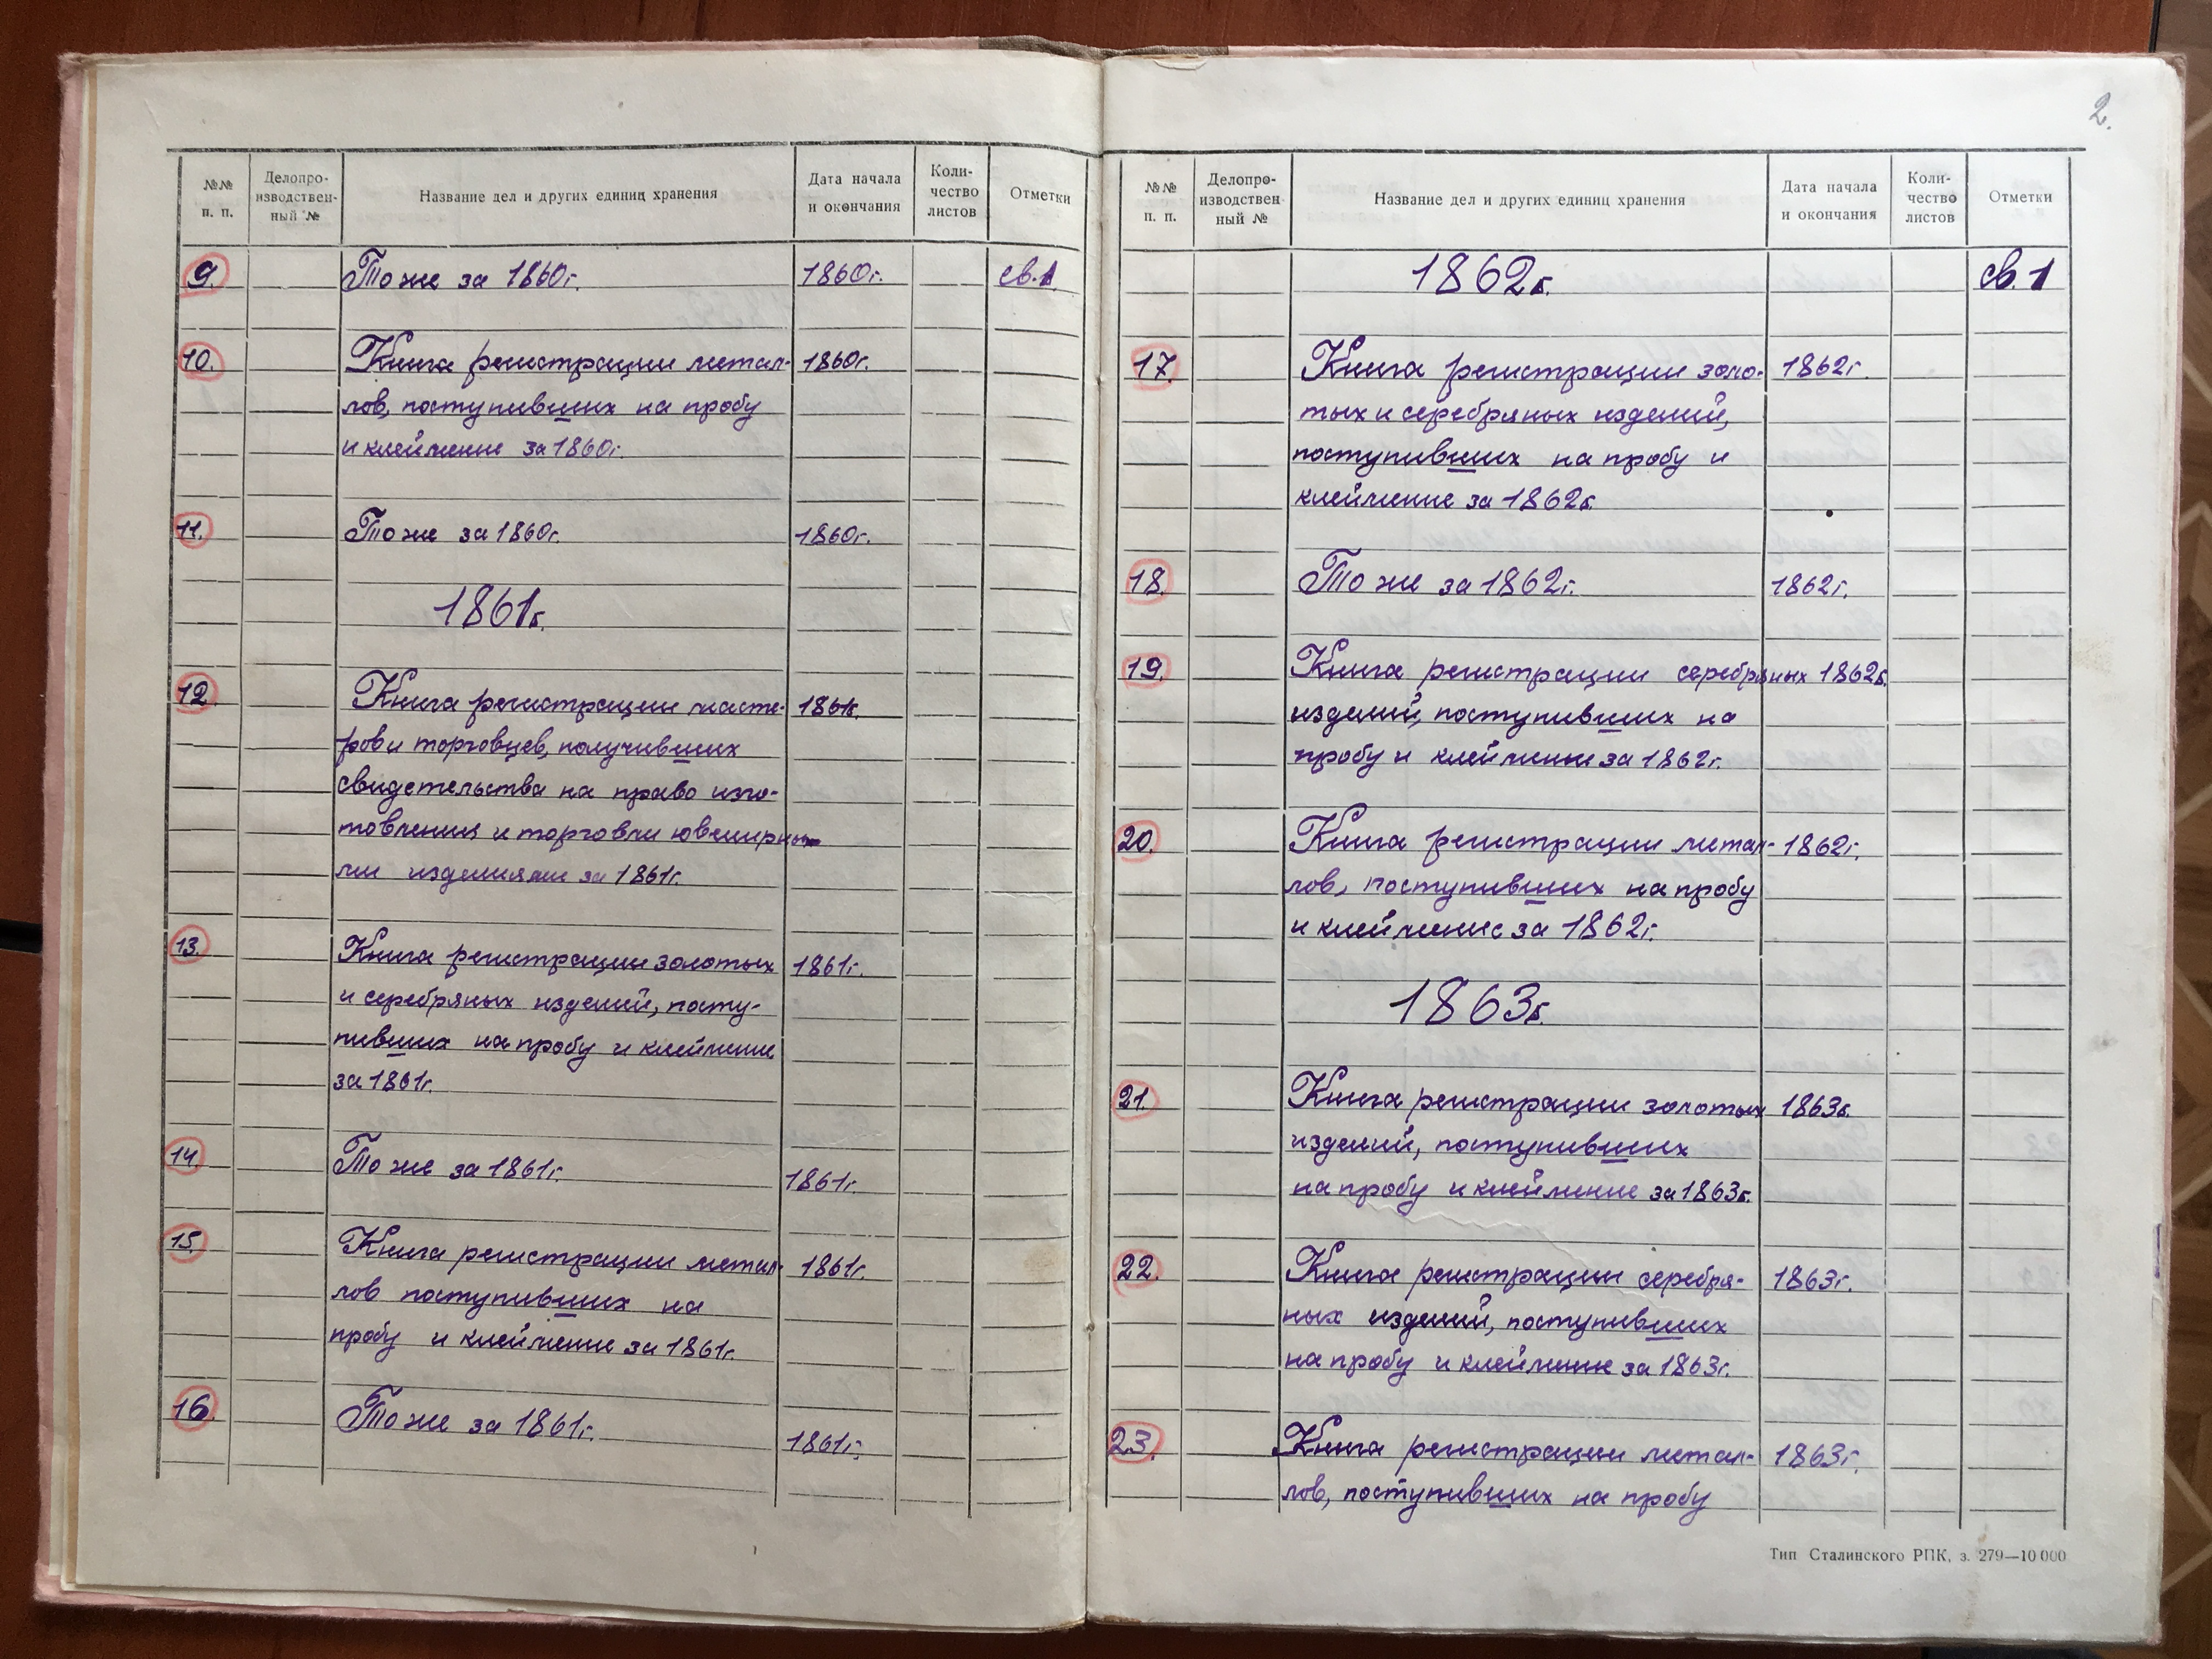 №№ п. п.
Делопро-
изводствен-
ный №
Название дел и других единиц хранения
Дата начала
и окончания
Коли-
чество
листов
Отметки
9. То же за 1860г. 1860г. св.1
10. Книга регистрации метал- 1860г.
лов, поступивших на пробу
и клеймение за 1860г.
11. То же за 1860г. 1860г.
1861г.
12. Книга регистрации масте- 1861г.
ров и торговцев, получивших
свидетельства на право изго-
товления и торговли ювелирны-
ми изделиями за 1861г.
13. Книга регистрации золотых 1861г.
и серебряных изделий, посту-
пивших на пробу и клеймение
за 1861г.
14. То же за 1861г. 1861г.
15. Книга регистрации метал- 1861г.
лов поступивших на
пробу и клеймение за 1861г.
16. То же за 1861г. 1861г.
2.
№№ п. п.
Делопро-
изводствен
ный №
Название дел и других единиц хранения
Дата начала
и окончания
Коли-
чество
листов
Отметки
1862г. св. 1
17. Книга регистрации золо- 1862г.
тых и серебряных изделий,
поступивших на пробу и
клеймение за 1862г.
18. То же за 1862г. 1862г.
19. Книга регистрации серебряных 1862г.
изделий, поступивших на
пробу и клеймение за 1862г.
20. Книга регистрации метал- 1862г.
лов, поступивших на пробу
и клеймение за 1862г.
1863г.
21. Книга регистрации золотых 1863г.
изделий, поступивших
на пробу и клеймение за 1863г.
22. Книга регистрации серебря- 1863г.
ных изделий, поступивших
на пробу и клеймение за 1863г.
23. Книга регистрации метал- 1863г.
лов, поступивших на пробу
Тип Сталинского РПК, з. 279—10 000